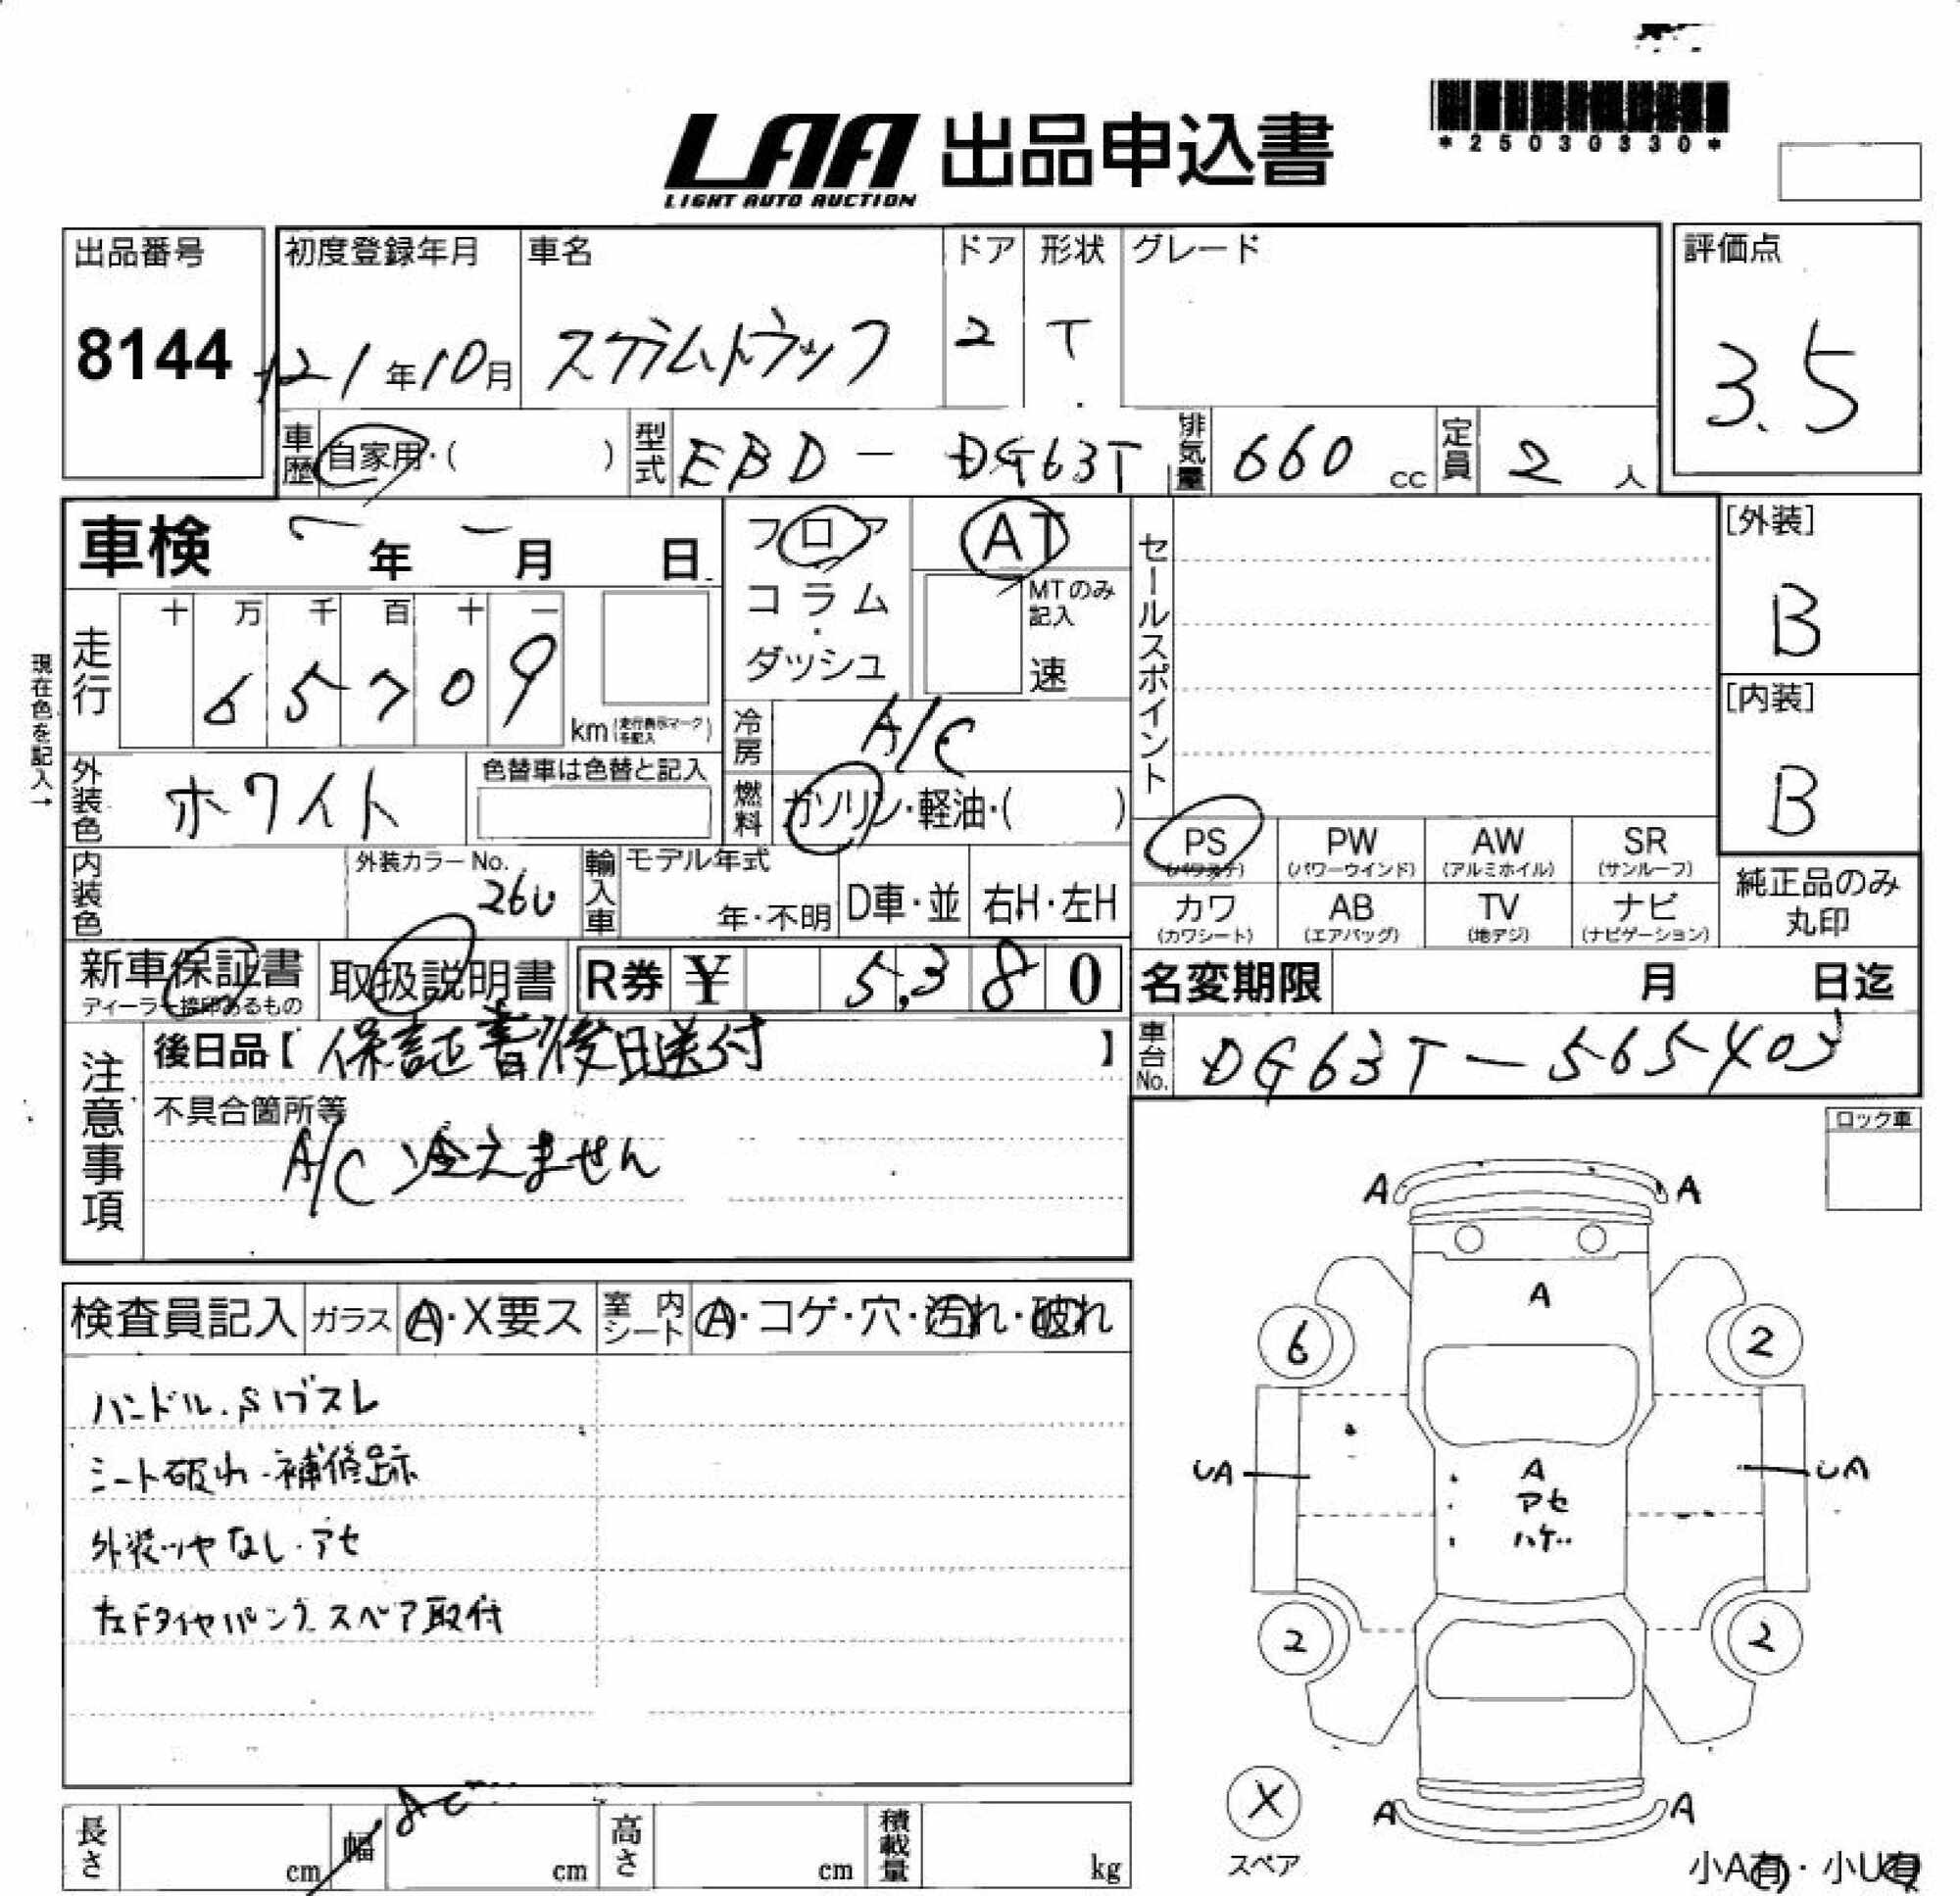 *25030330*
LAA 出品申込書
LIGHT AUTO AUCTION
出品番号
8144
初度登録年月
21年10月
車名
スクラムトラック
ドア
2
形状
T
グレード
評価点
3.5
車歴
自家用・( )
型式
EBD-DG63T
排気量
660 cc
定員
2 人
車検 年 月 日
フロア
コラム
・
ダッシュ
AT
MTのみ
記入
速
セールスポイント
[外装]
B
[内装]
B
現在色を記入→
走行
十 万 千 百 十 一
6 5 7 0 9
km (走行表示マークを記入)
冷房
A/C
外装色
ホワイト
色替車は色替と記入
燃料
ガソリン・軽油・( )
PS
(パワステ)
PW
(パワーウインド)
AW
(アルミホイル)
SR
(サンルーフ)
カワ
(カワシート)
AB
(エアバッグ)
TV
(地デジ)
ナビ
(ナビゲーション)
純正品のみ
丸印
内装色
外装カラーNo.
26U
輸入車
モデル年式
年・不明
D車・並
右H・左H
新車保証書
ディーラー捺印あるもの
取扱説明書
R券 ¥ 5,380
名変期限 月 日迄
注意事項
後日品【 保証書後日送付 】
車台No.
DG63T-565405
不具合箇所等
A/C 冷えません
ロック車
検査員記入
ガラス
A・X要ス
室内シート
A・コゲ・穴・汚れ・破れ
ハンドル.SIゴスレ
シート破れ・補修跡
外装ツヤなし・アセ
左Fタイヤパンク スペア取付
A A
A
6 2
UA UA
A
アセ
ハゲ
2 2
A A
X
スペア
小A有・小U有
長さ cm
幅 cm
高さ cm
積載量 kg